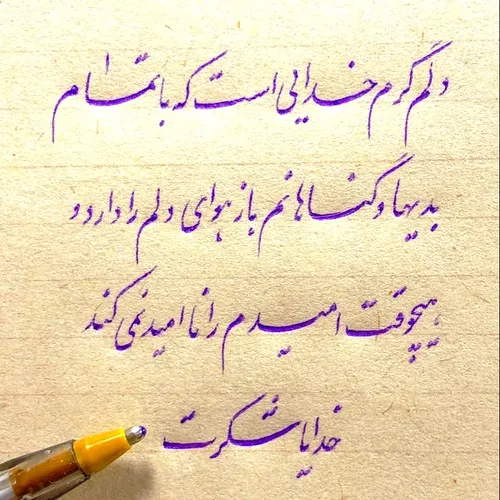 دلم گرم خدایی است که با تمام
بدیها و گناهانم باز هوای دلم را دارد و
هیچوقت امیدم را ناامید نمی کند
خدایا شکرت